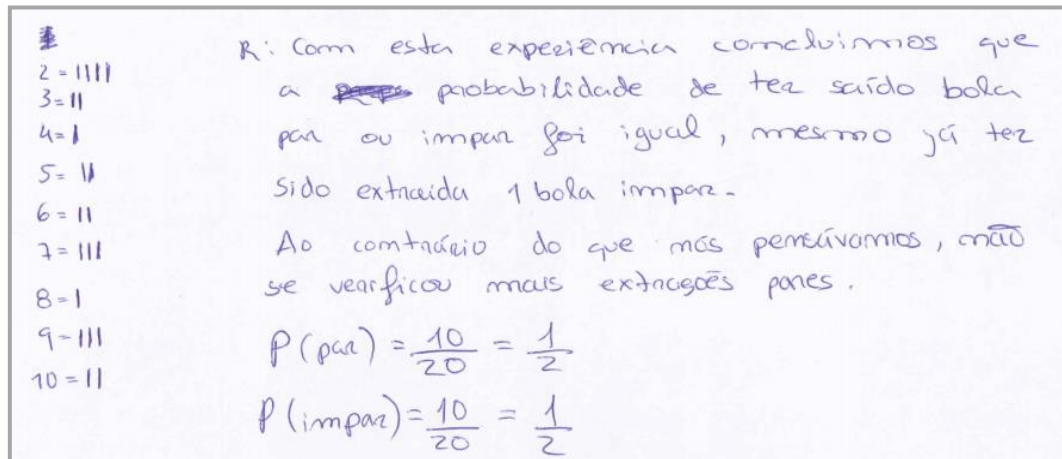 2 = IIII
3 = II
4 = I
5 = II
6 = II
7 = III
8 = I
9 = III
10 = II
R: Com esta experiência concluimos que
a probabilidade de ter saído bola
par ou impar foi igual, mesmo já ter
sido extraida 1 bola impar.
Ao contrário do que nós pensávamos, não
se verificou mais extrações pares.
P(par) = 10/20 = 1/2
P(impar) = 10/20 = 1/2